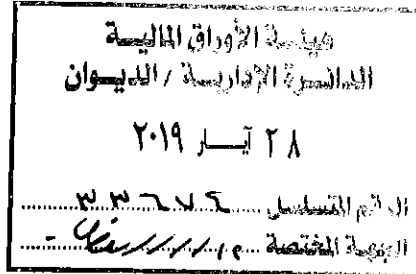 هيئة الأوراق المالية
الدائرة الإدارية / الديوان
٢٨ آيار ٢٠١٩
الرقم المتسلسل ٣٣٦٧٤
الجهة المختصة